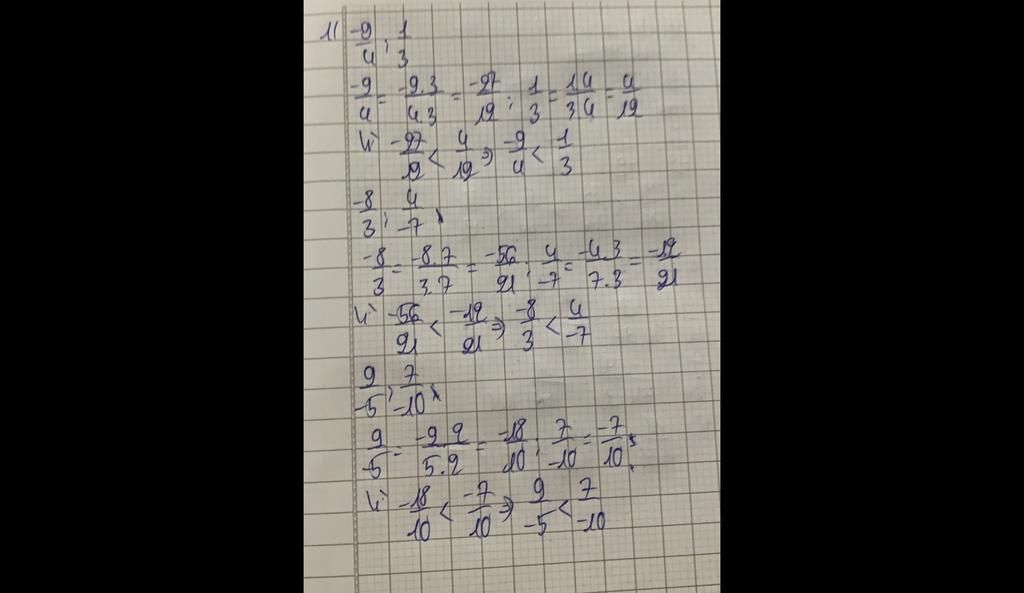 1( -9/4 ; 1/3
-9/4 = -9.3/4.3 = -27/12 ; 1/3 = 1.4/3.4 = 4/12
Vì -27/12 < 4/12 => -9/4 < 1/3
-8/3 ; 4/-7
-8/3 = -8.7/3.7 = -56/21 ; 4/-7 = -4.3/7.3 = -12/21
Vì -56/21 < -12/21 => -8/3 < 4/-7
9/-5 ; 7/-10
9/-5 = -9.2/5.2 = -18/10 ; 7/-10 = -7/10
Vì -18/10 < -7/10 => 9/-5 < 7/-10